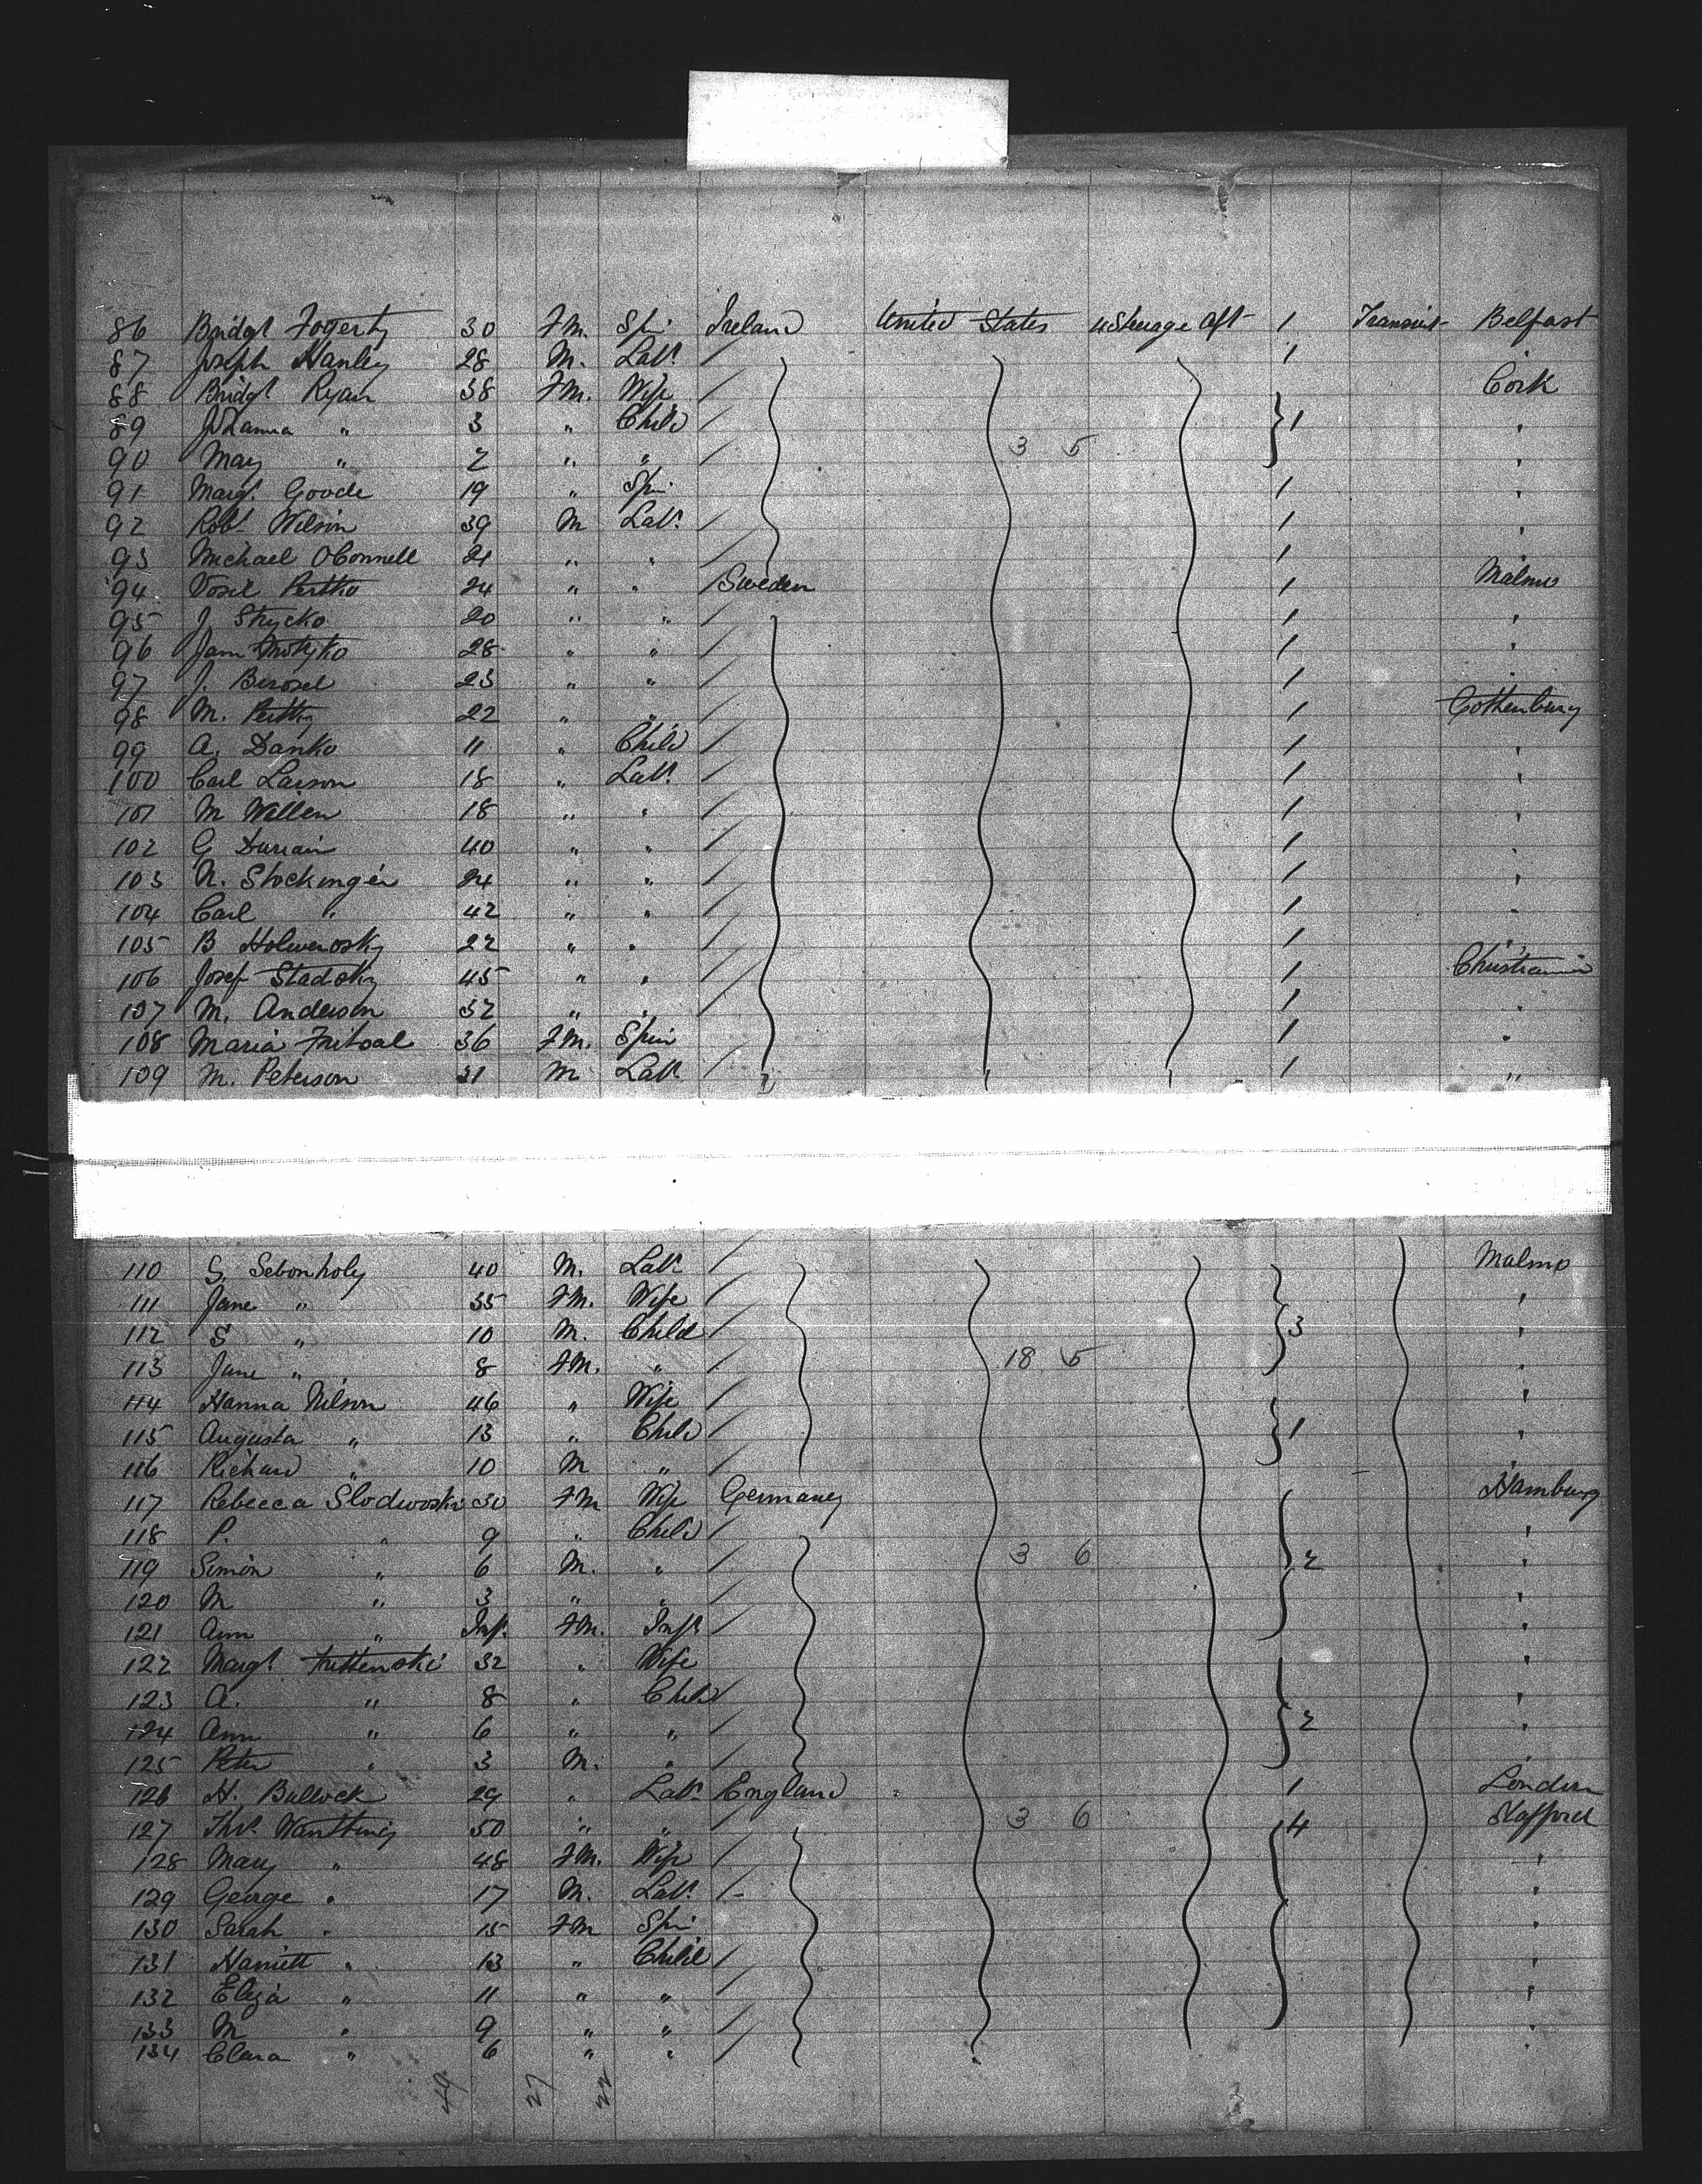 86 Bridgt Fogerty 30 FM. Spi Ireland United States Steerage Aft 1 Transit Belfast
87 Joseph Hanley 28 M. Labr / 1
88 Bridgt Ryan 38 FM. Wife / Cork
89 Johanna " 3 " Child / } 1 "
90 May " 2 " " / 3 5 "
91 Margt Goode 19 " Spi 1 "
92 Robt Wilson 39 M Labr / 1 "
93 Michael OConnell 21 " " / 1
94 Pertko 24 " " Sweden 1 Malmo
95 J. Strycko 20 " " / 1 "
96 28 " " / 1 "
97 J. 23 " " / 1 "
98 M. 22 " " / 1 Gothenburg
99 A. Danko 11 " Child / 1 "
100 Carl Larson 18 " Labr / 1 "
101 M Wallen 18 " " / 1 "
102 G Durian 40 " " / 1 "
103 N. Stockinger 24 " " / 1 "
104 Carl " 42 " " / 1 "
105 B 22 " " / 1 "
106 Josef Stadsky 45 " " / 1 Christiania
107 M. Anderson 32 " " / 1 "
108 Maria 36 FM. Spin 1 "
109 M. Peterson 31 M Labr / 1 "
110 S. Sebonholy 40 M. Labr / Malmo
111 Jane " 35 FM. Wife / "
112 S " 10 M. Child / } 3 "
113 Jane " 8 FM. " / 18 5 "
114 Hanna Nilson 46 " Wife / "
115 Augusta " 13 " Child / } 1 "
116 Richard " 10 M " / "
117 Rebecca Slodwoski 30 FM Wife Germany Hamburg
118 P. " 9 " Child / "
119 Simon " 6 M. " / 3 6 } 2 "
120 M " 3 " " / "
121 Ann " Inf. FM. Inft / "
122 Margt 32 " Wife "
123 A. " 8 " Child / "
124 Ann " 6 " " / } 2 "
125 Peter " 3 M. " / "
126 H. Bullock 29 " Labr England 1 London
127 Thos. 50 " " 3 6 4 Stafford
128 Mary " 48 FM. Wife / "
129 George " 17 M. Labr / "
130 Sarah " 15 FM Spi "
131 Harriett " 13 " Child / "
132 Eliza " 11 " " / "
133 M " 9 " " / "
134 Clara " 6 " " / "
49 27 22